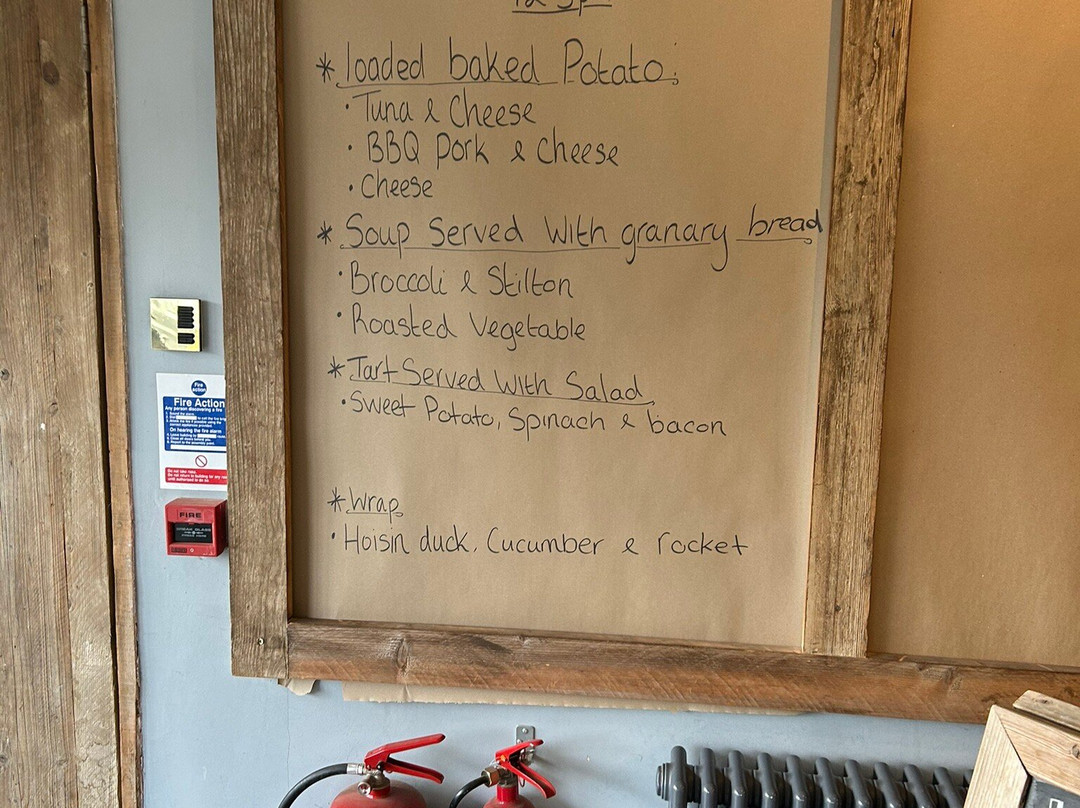 * loaded baked Potato:
· Tuna & Cheese
· BBQ Pork & Cheese
· Cheese
* Soup Served With granary bread
· Broccoli & Stilton
· Roasted Vegetable
* Tart Served With Salad
· Sweet Potato, Spinach & bacon
* Wrap
· Hoisin duck, Cucumber & rocket
Fire action
Fire Action
Any person discovering a fire
On hearing the fire alarm
Do not take risks.
FIRE